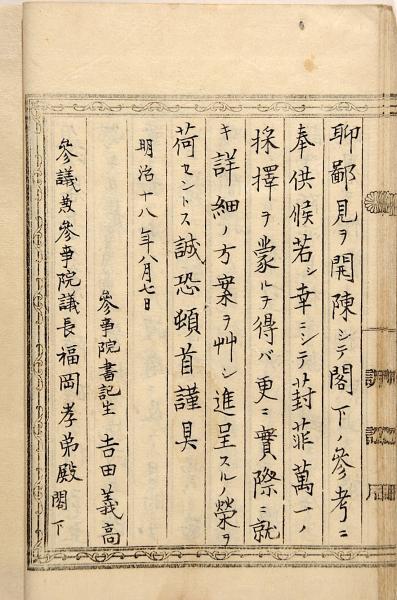 聊鄙見ヲ開陳シテ閣下ノ參考ニ
奉供候若シ幸ニシテ葑菲萬一ノ
採擇ヲ蒙ルヲ得バ更ニ實際ニ就
キ詳細ノ方案ヲ艸シ進呈スルノ榮ヲ
荷セントス誠恐頓首謹具
明治十八年八月七日
參事院書記生 吉田義高
參議兼參事院議長福岡孝弟殿 閣下